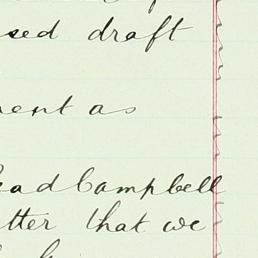 sed draft
ment as
ead Campbell
tter that we